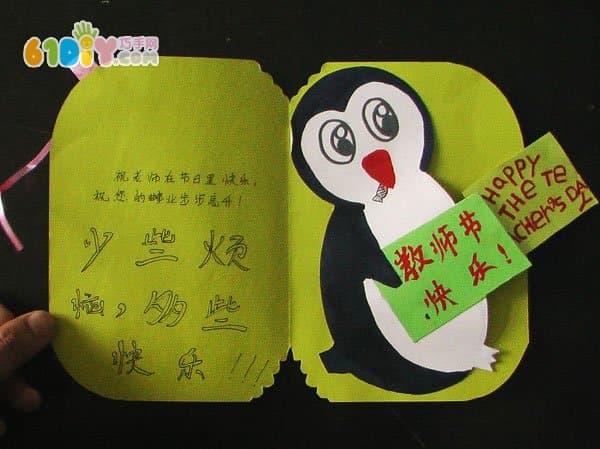 61DiY巧手网
.com
祝老师在节日里快乐,
祝您的事业步步高升!
少些烦
恼,多些
快乐!!!
教师节
快乐!
HAPPY
THE TE
CHER'S DAY